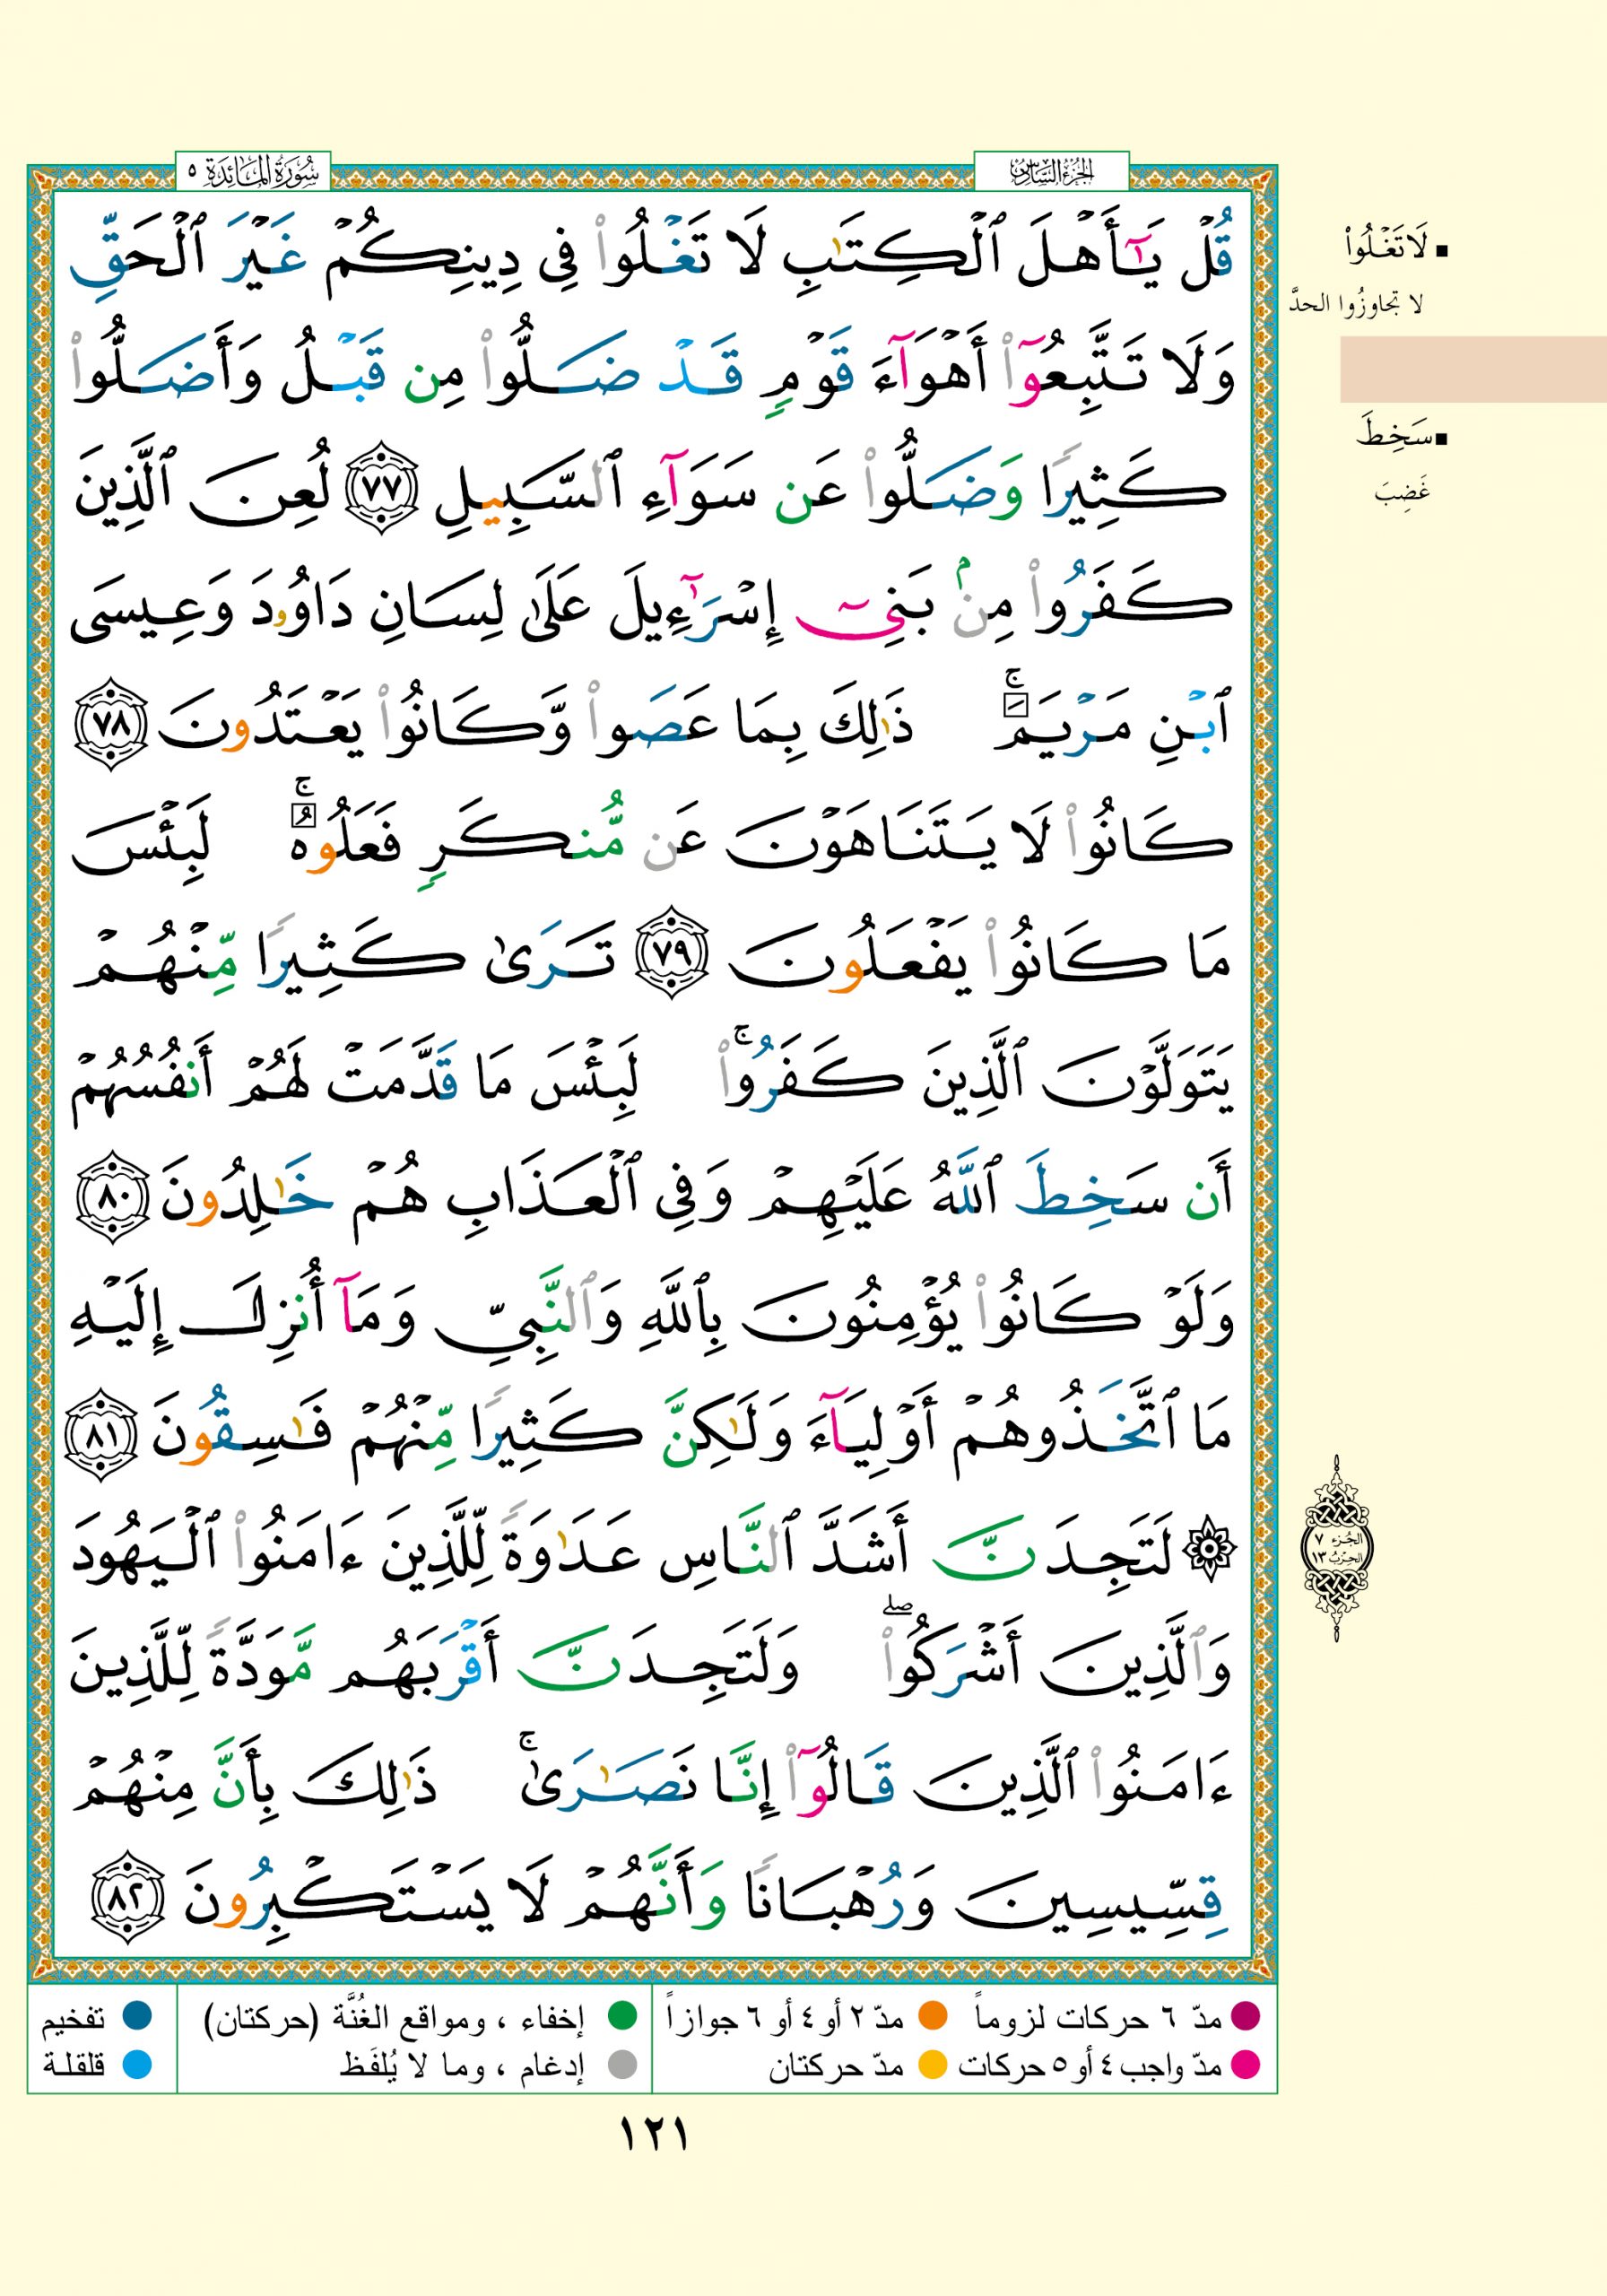 الجزء السادس
سورة المائدة ٥
قُلْ يَـٰٓأَهْلَ ٱلْكِتَـٰبِ لَا تَغْلُوا۟ فِى دِينِكُمْ غَيْرَ ٱلْحَقِّ
وَلَا تَتَّبِعُوٓا۟ أَهْوَآءَ قَوْمٍ قَدْ ضَلُّوا۟ مِن قَبْلُ وَأَضَلُّوا۟
كَثِيرًا وَضَلُّوا۟ عَن سَوَآءِ ٱلسَّبِيلِ ٧٧ لُعِنَ ٱلَّذِينَ
كَفَرُوا۟ مِنۢ بَنِىٓ إِسْرَٰٓءِيلَ عَلَىٰ لِسَانِ دَاوُۥدَ وَعِيسَى
ٱبْنِ مَرْيَمَ ۚ ذَٰلِكَ بِمَا عَصَوا۟ وَّكَانُوا۟ يَعْتَدُونَ ٧٨
كَانُوا۟ لَا يَتَنَاهَوْنَ عَن مُّنكَرٍ فَعَلُوهُ ۚ لَبِئْسَ
مَا كَانُوا۟ يَفْعَلُونَ ٧٩ تَرَىٰ كَثِيرًا مِّنْهُمْ
يَتَوَلَّوْنَ ٱلَّذِينَ كَفَرُوا۟ ۚ لَبِئْسَ مَا قَدَّمَتْ لَهُمْ أَنفُسُهُمْ
أَن سَخِطَ ٱللَّهُ عَلَيْهِمْ وَفِى ٱلْعَذَابِ هُمْ خَـٰلِدُونَ ٨٠
وَلَوْ كَانُوا۟ يُؤْمِنُونَ بِٱللَّهِ وَٱلنَّبِىِّ وَمَآ أُنزِلَ إِلَيْهِ
مَا ٱتَّخَذُوهُمْ أَوْلِيَآءَ وَلَـٰكِنَّ كَثِيرًا مِّنْهُمْ فَـٰسِقُونَ ٨١
۞ لَتَجِدَنَّ أَشَدَّ ٱلنَّاسِ عَدَٰوَةً لِّلَّذِينَ ءَامَنُوا۟ ٱلْيَهُودَ
وَٱلَّذِينَ أَشْرَكُوا۟ ۖ وَلَتَجِدَنَّ أَقْرَبَهُم مَّوَدَّةً لِّلَّذِينَ
ءَامَنُوا۟ ٱلَّذِينَ قَالُوٓا۟ إِنَّا نَصَـٰرَىٰ ۚ ذَٰلِكَ بِأَنَّ مِنْهُمْ
قِسِّيسِينَ وَرُهْبَانًا وَأَنَّهُمْ لَا يَسْتَكْبِرُونَ ٨٢
لَا تَغْلُوا۟
لا تجاوزُوا الحدَّ
سَخِطَ
غَضِبَ
الجزء ٧
الحزب ١٣
مدّ ٦ حركات لزوماً
مدّ ٢ أو ٤ أو ٦ جوازاً
إخفاء ، ومواقع الغُنَّة (حركتان)
تفخيم
مدّ واجب ٤ أو ٥ حركات
مدّ حركتان
إدغام ، وما لا يُلفَظ
قلقلة
١٢١